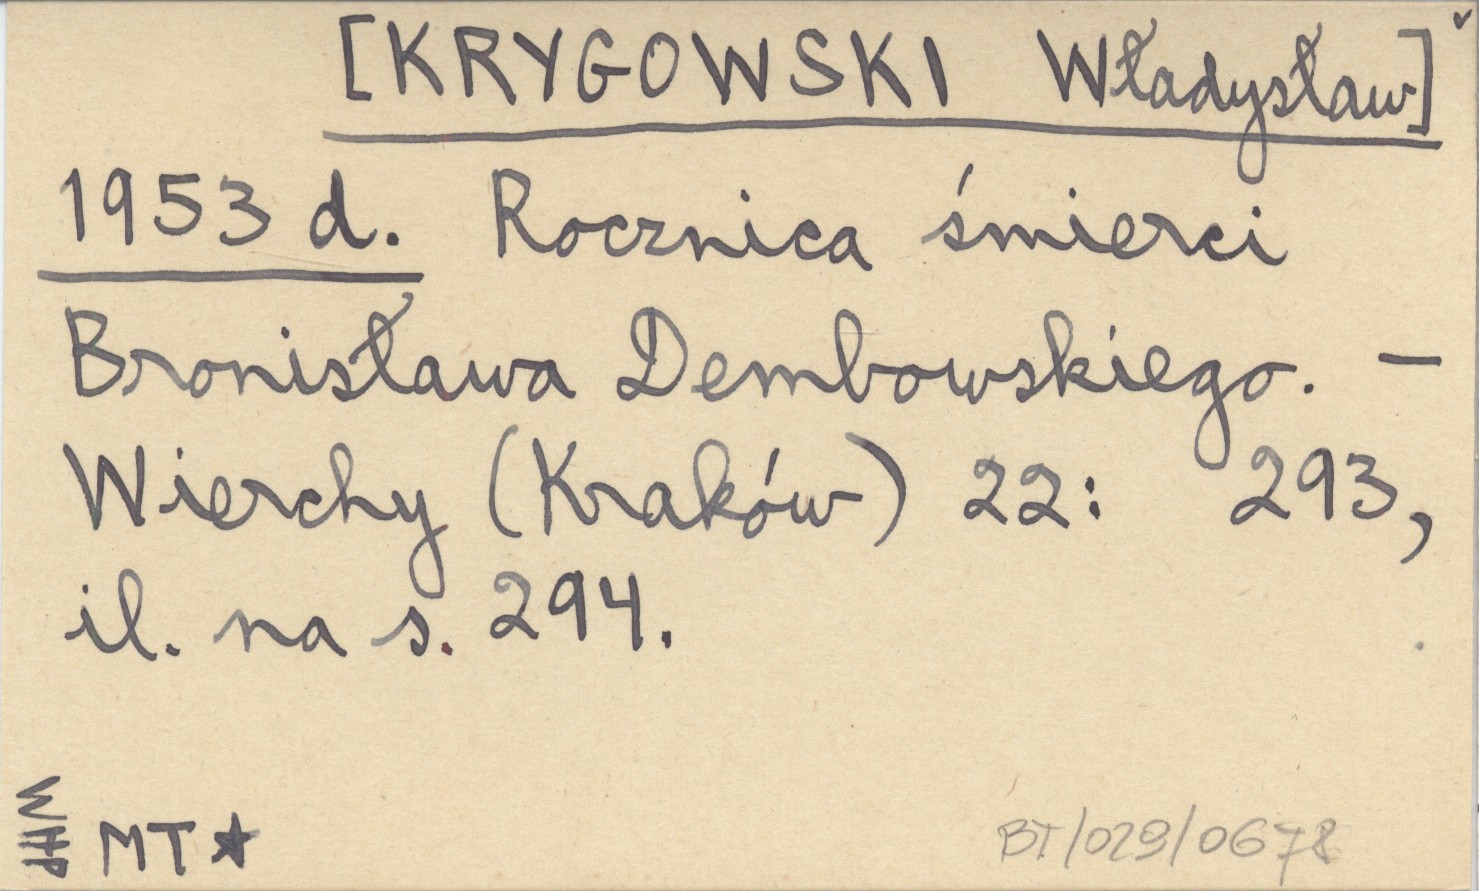 [KRYGOWSKI Władysław]
1953 d. Rocznica śmierci
Bronisława Dembowskiego. –
Wierchy (Kraków) 22: 293,
il. na s. 294.
WHP
MT★
BT/029/0678